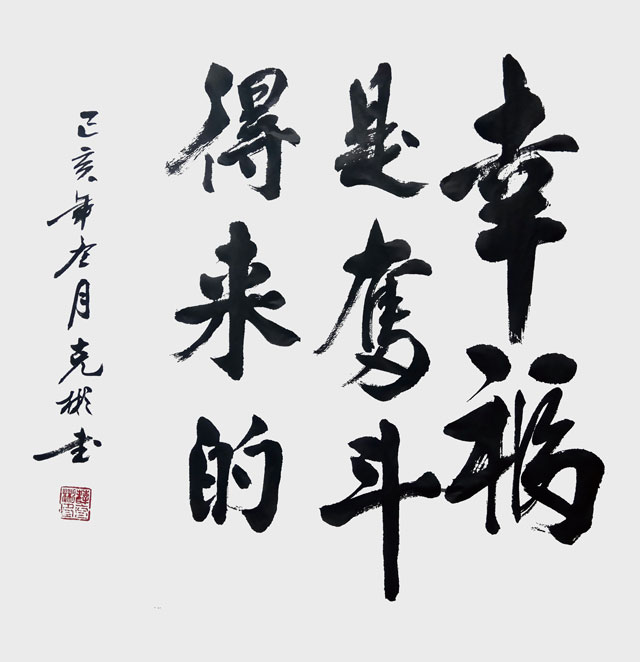 幸福
是奮斗
得来的
己亥年冬月克彬書